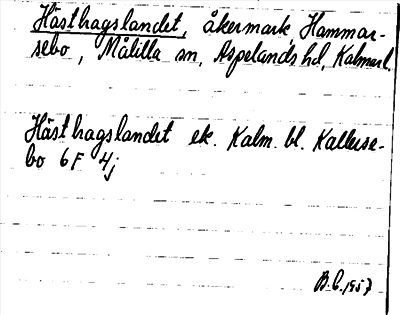 Hästhagslandet, åkermark, Hammar-
sebo, Målilla sn, Aspelands hd, Kalmarl.
Hästhagslandet ek. Kalm. bl. Kallerse-
bo 6F 4j
B.C. 1957